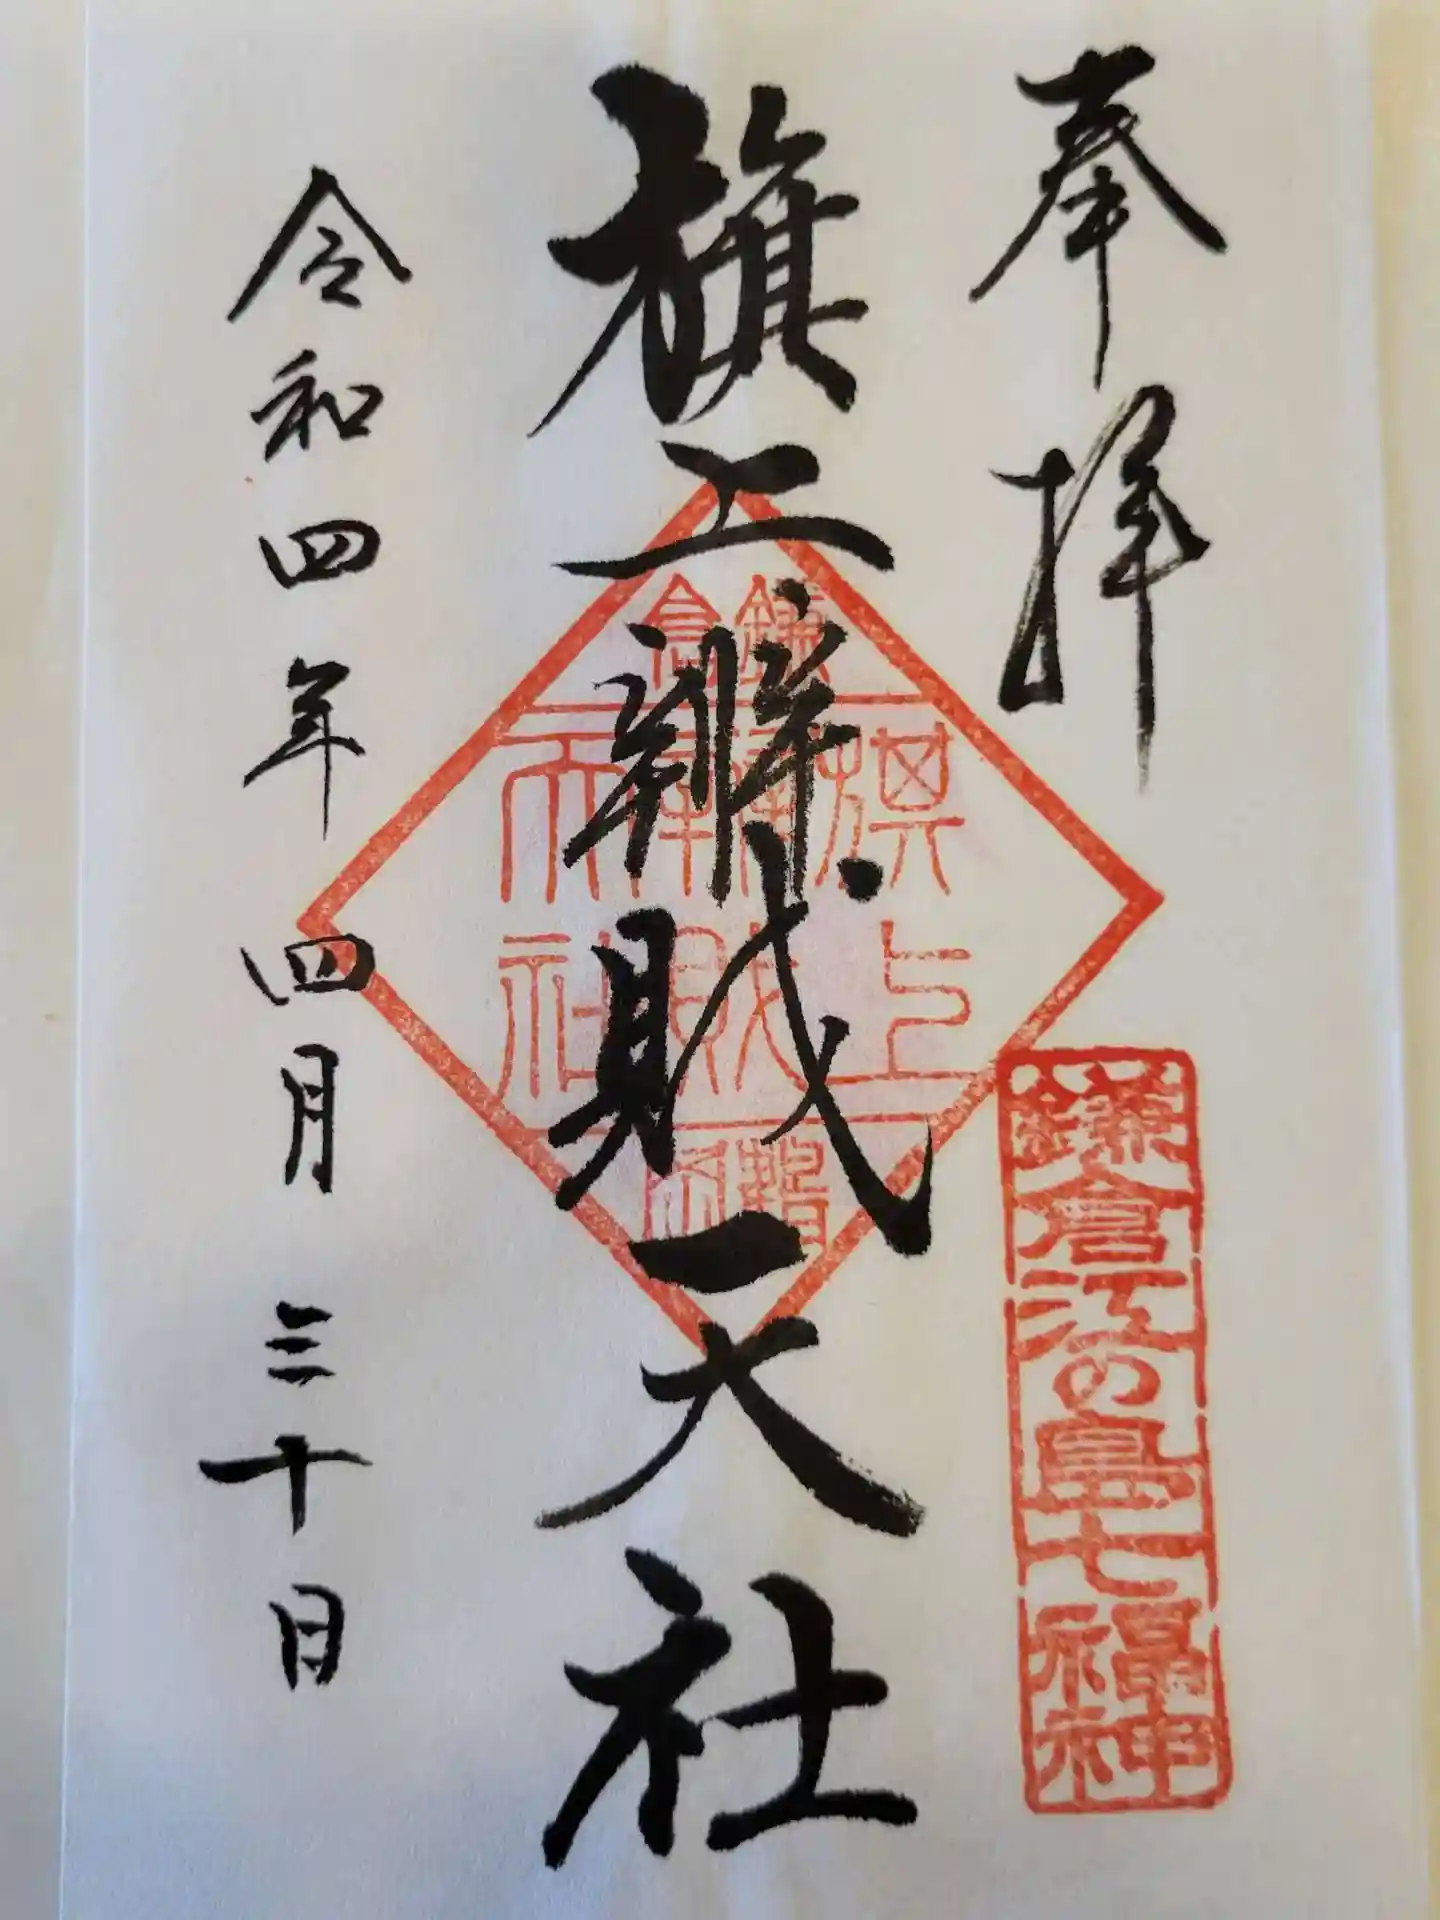 奉拝
鎌倉江の島七福神
旗上辨財天社
鎌倉
旗上
辨財
天社
令和四年 四月 三十日